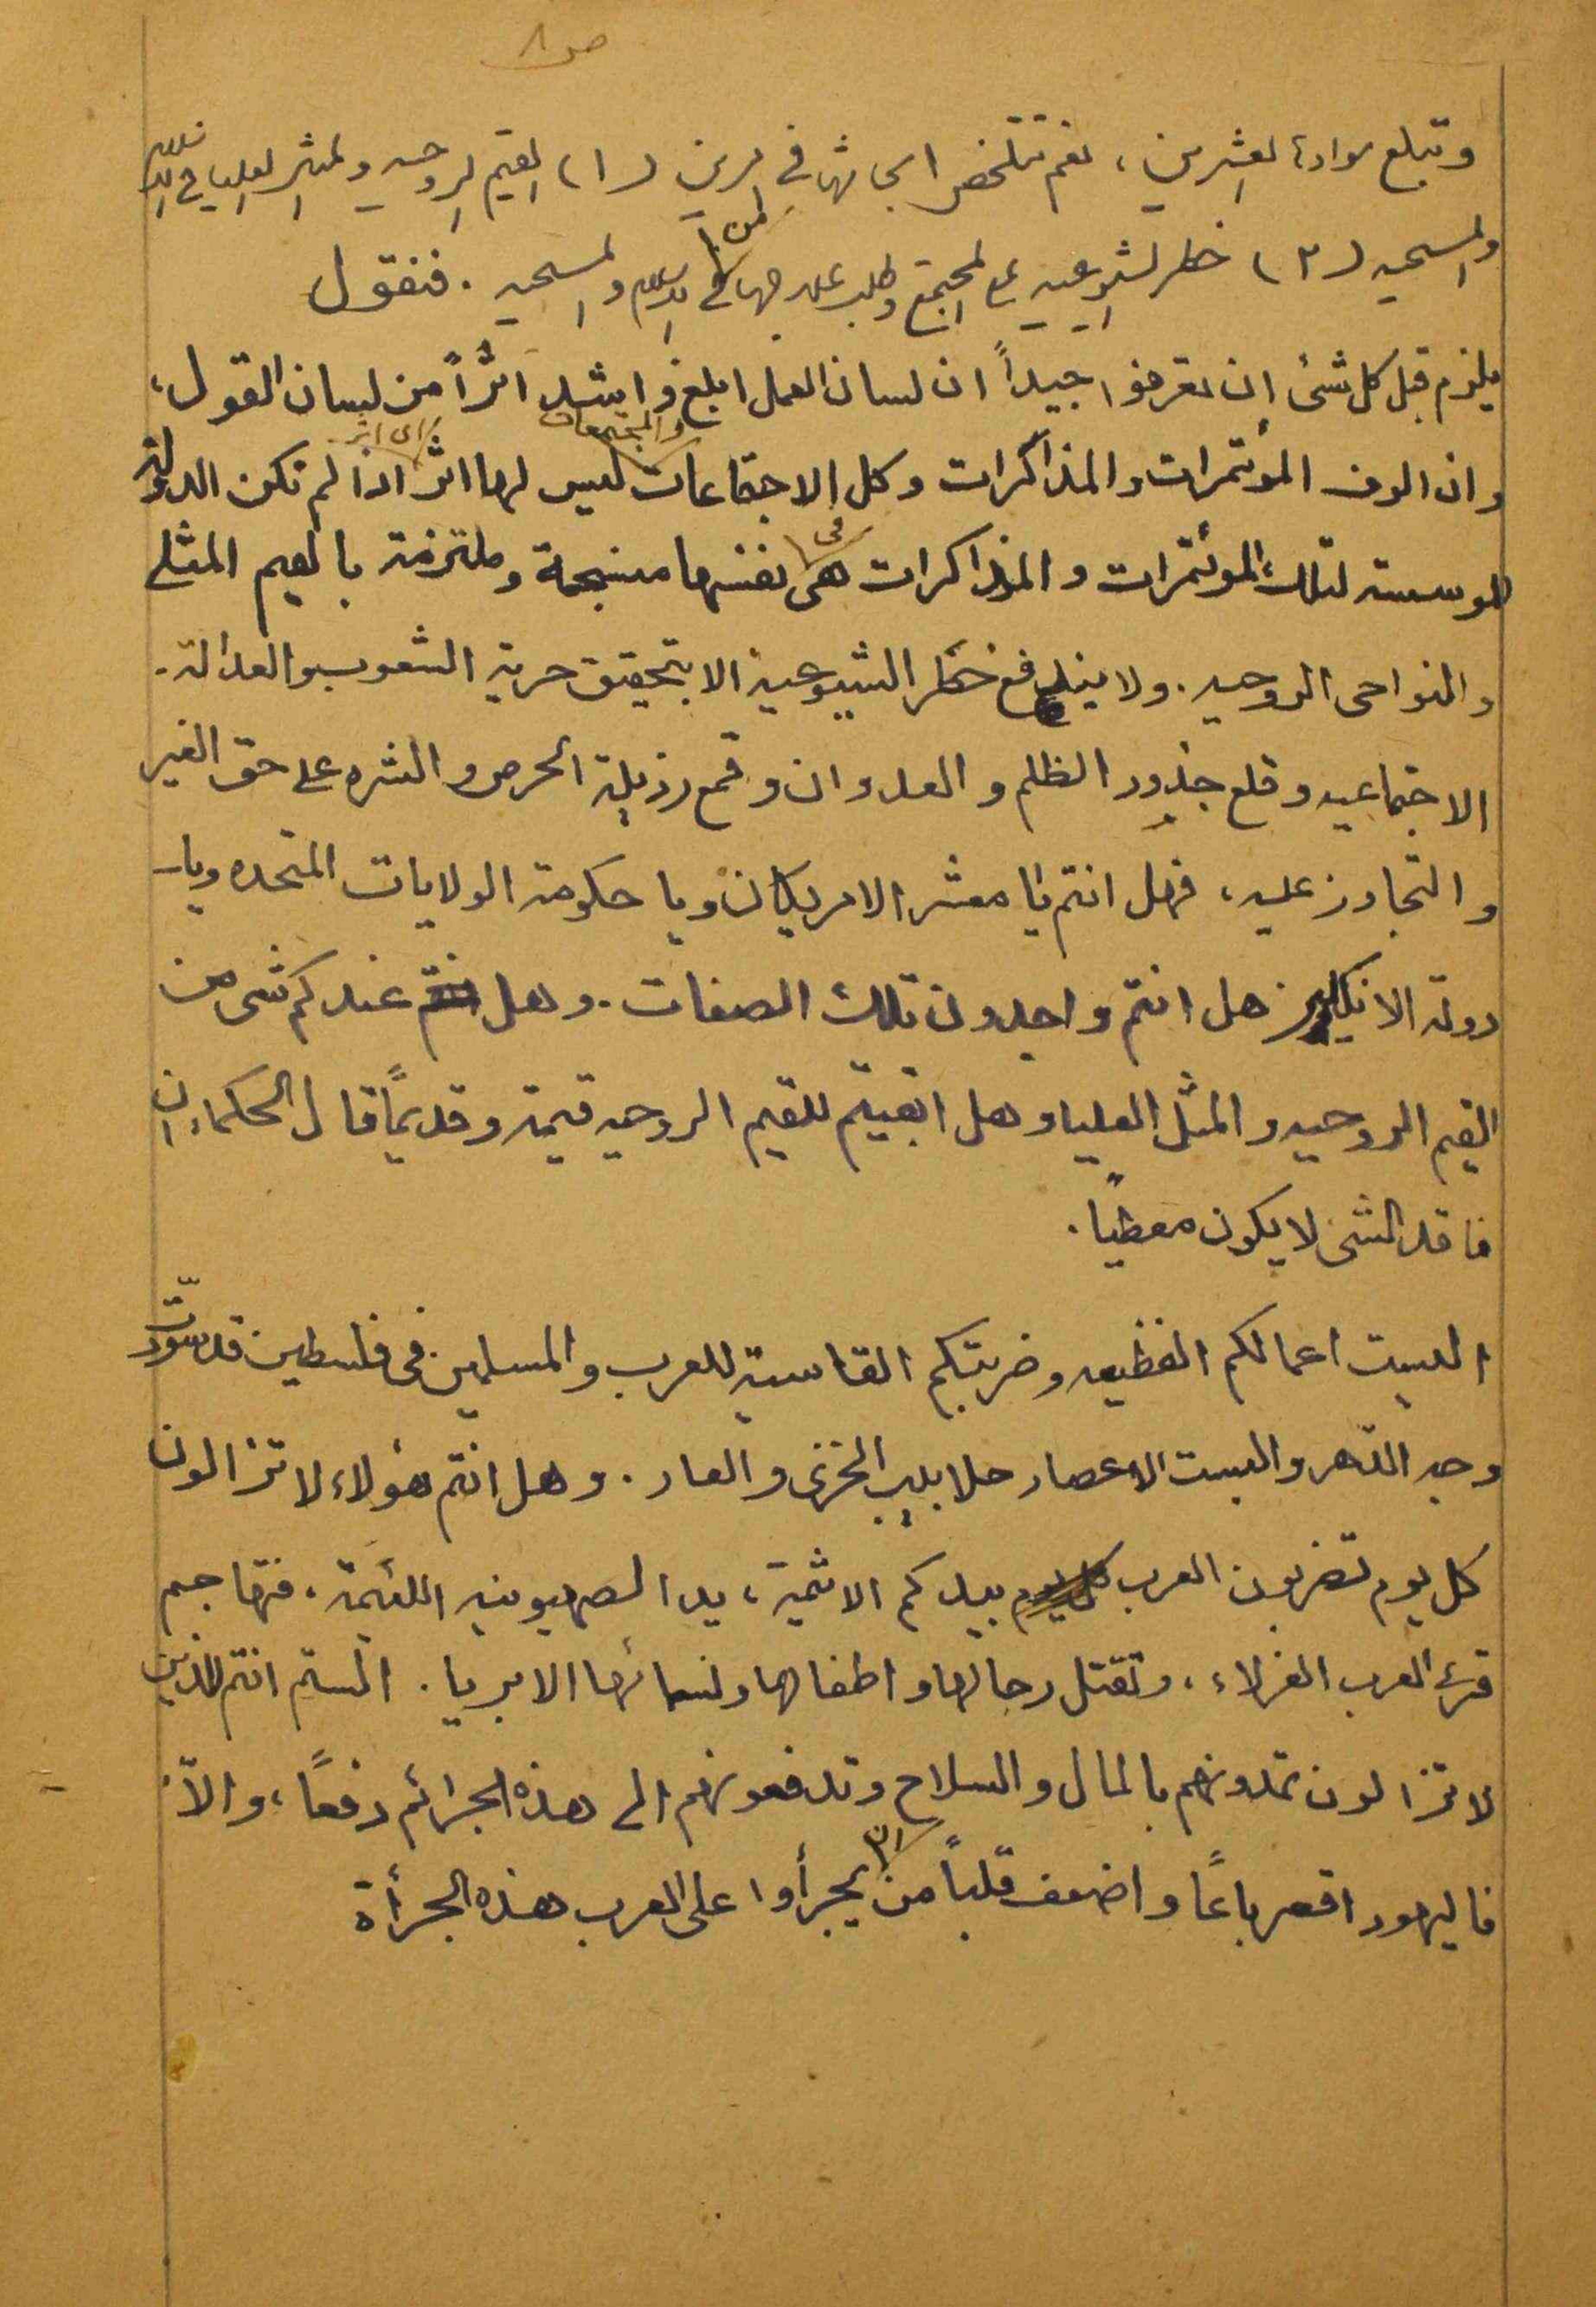 ص ٨
وتبلغ موادها العشرين، نعم تتلخص ابحاثها في امرين (١) القيم الروحيه والمثل العليا في الاسلام
والمسيحيه (٢) خطر الشيوعيه على المجتمع وطلب علاجها من الاسلام والمسيحيه . فنقول
يلزم قبل كل شئ ان تعرفوا جيداً ان لسان العمل ابلغ واشد اثراً من لسان القول،
وان الوف المؤتمرات والمذاكرات وكل الاجتماعات والمجتمعات ليس لها اثر اي اثر اذا لم تكن الدولة
الموسسه لتلك المؤتمرات والمذاكرات هى في نفسها منسجمة وملتزمة بالقيم المثلى
والنواحى الروحيه . ولا يندفع خطر الشيوعية الا بتحقيق حرية الشعوب والعدالة -
الاجتماعيه وقلع جذور الظلم والعدوان وقمع رذيلة الحرص والشره على حق الغير
والتجاوز عليه، فهل انتم يا معشر الامريكان ويا حكومة الولايات المتحده ويا -
دولة الانكليز هل انتم واجدون تلك الصفات . وهل عندكم شى من
القيم الروحيه والمثل العليا وهل ابقيتم للقيم الروحيه قيمة وقديمًا قال الحكماء ان
فاقد الشئ لا يكون معطيًا .
اليست اعمالكم الفظيعه وضربتكم القاسية للعرب والمسلمين فى فلسطين قد سوّدت
وجه الدهر والبست الاعصار جلابيب الخزى والعار . وهل انتم هؤلاء لا تزالون
كل يوم تضربون العرب كل يوم بيدكم الاثمية، يد الصهيونيه اللئيمة . فتهاجم
قرى العرب العزلاء، وتقتل رجالها واطفالها ونسائها الابريا . الستم انتم الذين
لا تزالون تمدونهم بالمال والسلاح وتدفعونهم الى هذه الجرائم دفعًا، والاّ
فاليهود اقصر باعًا واضعف قلباً من ان يجرأوا على العرب هذه الجرأة